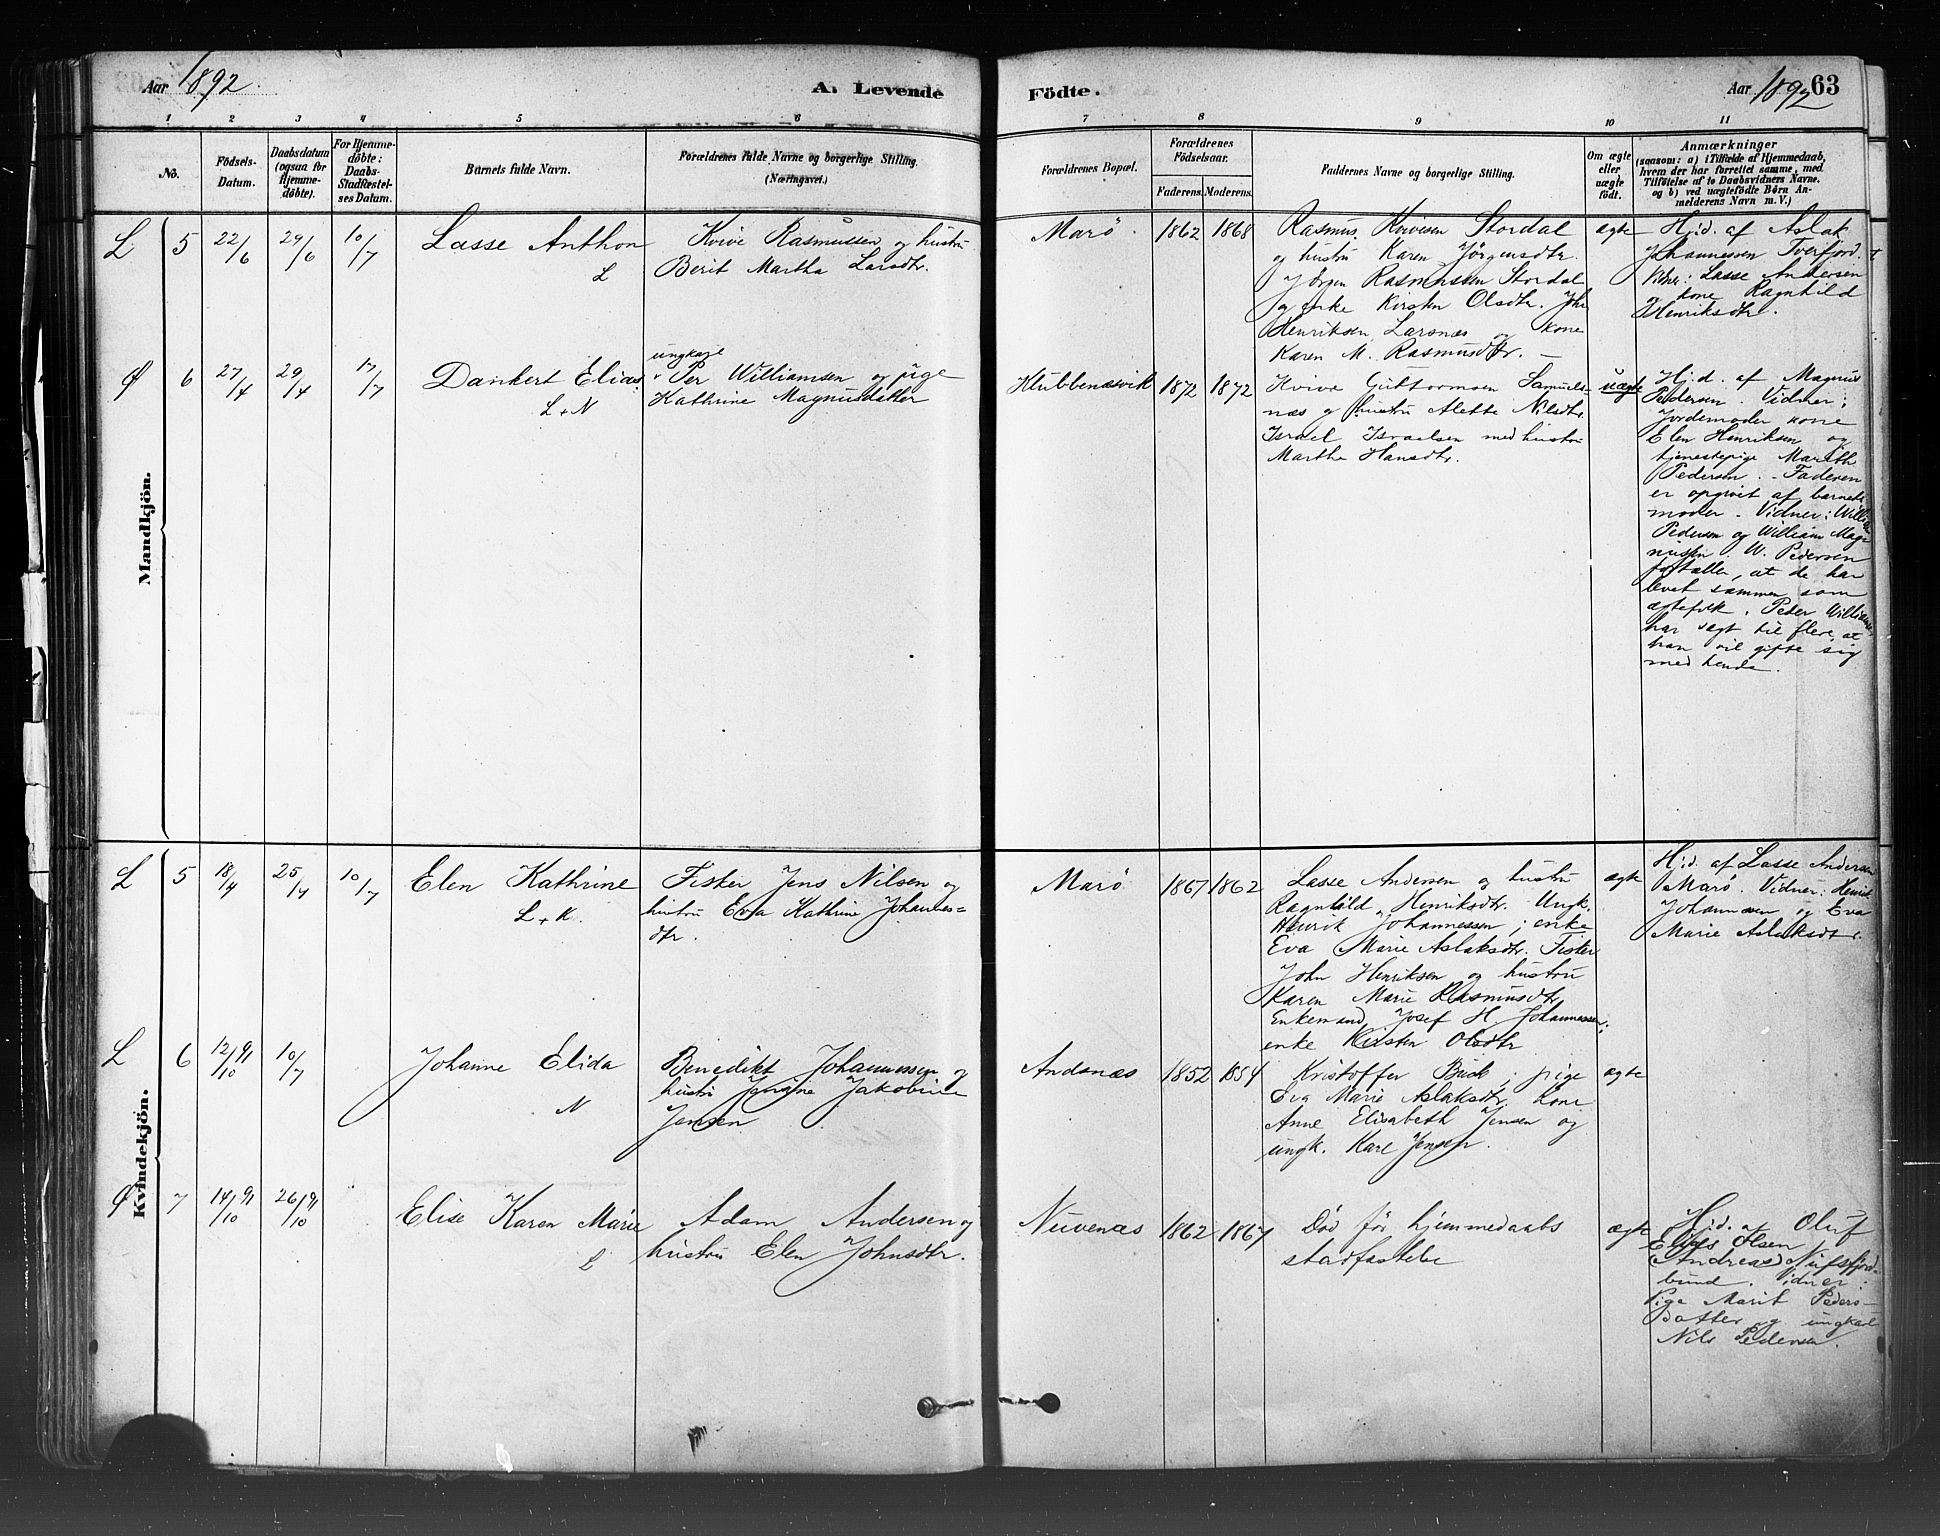 Aar 1892. A. Levende Födte. Aar 1892 63
1 2 3 4 5 6 7 8 9 10 11
No.
Födsels-
Datum.
Daabsdatum
(ogsaa for
Hjemme-
döbte).
For Hjemme-
döbte:
Daabs-
Stadfæstel-
ses Datum.
Barnets fulde Navn.
Forældrenes fulde Navne og borgerlige Stilling.
(Næringsvei.)
Forældrenes Bopæl.
Forældrenes
Födselsaar.
Faderens. Moderens.
Faddernes Navne og borgerlige Stilling.
Om ægte
eller
uægte
födt.
Anmærkninger
(saasom: a) i Tilfælde af Hjemmedaab,
hvem der har forrettet samme, med
Tilföielse af to Daabsvidners Navne.
og b) ved uægtefödte Börn An-
melderens Navn m. V.)
Mandkjön.
L 5 22/6 29/6 10/7
Lasse Anthon
L
Kvive Rasmussen og hustru
Berit Martha Larsdtr.
Marö. 1862 1868
Rasmus Kvivesen Stordal
og hustru Karen Jörgensdtr.
Jörgen Rasmussen Stordal
og enke Kirsten Olsdtr. John
Henriksen Larsnæs og kone
Karen M. Rasmusdtr. —
ægte
Hj.d. af Aslak
Johannessen Tverfjord.
Vidner: Lasse Andersen
og kone Ragnhild
Henriksdtr.
Ø 6 27/4 29/4 17/7
Dankert Elias
L+N
ungkarl
Per Williamsen og pige
Kathrine Magnusdatter
Klubbenæsvik 1872 1872
Kvive Guttormsen Samuels-
næs og hustru Alette Nilsdtr.
Israel Israelsen med hustru
Marthe Hansdtr.
uægte
Hj.d. af Magnus
Pedersen. Vidner:
Jordemoder kone
Elen Henriksen og
tjenestepige Marith
Pedersen. - Faderen
er opgivet af barnets
moder. Vidner: William
Pedersen og William Mag-
nussen. W. Pedersen
fortæller, at de har
levet sammen som
ægtefolk. Peder Williamsen
har sagt til flere, at
han vil gifte sig
med hende.
Kvindekjön.
L 5 18/4 25/4 10/7
Elen Kathrine
L+K.
Fisker Jens Nilsen og
hustru Eva Kathrine Johannes=
dtr.
Marö 1867 1862
Lasse Andersen og hustru
Ragnhild Henriksdtr. Ungk.
Henrik Johannessen; enke
Eva Marie Aslaksdtr. Fisker
John Henriksen og hustru
Karen Marie Rasmusdtr.
Enkemand Josef H. Johannessen;
enke Kirsten Olsdtr
ægte
Hj.d. af Lasse Andersen
Marö. Vidner: Henrik
Johannesen og Eva
Marie Aslaksdtr.
L 6 12/10 91 10/7
Johanne Elida
N
Benedikt Johannessen og
hustru Jensine Jakobine
Jensen
Andsnæs 1852 1854
Kristoffer; pige
Eva Marie Aslaksdtr. Kone
Anne Elisabeth Jensen og
ungk. Karl Jensen.
ægte
Ø 7 14/10 91 26/10 91
Elise Karen Marie
L
Adam Andersen og
hustru Elen Johnsdtr.
Nuvenæs 1862 1867
Död för hjemmedaabs
stadfæstelse
ægte
Hj.d. af Oluf
Elias Olsen
Andreas Nufsfjord-
bund. Vidner:
Pige Marit Peders-
Datter og ungkarl
Nils Pedersen.